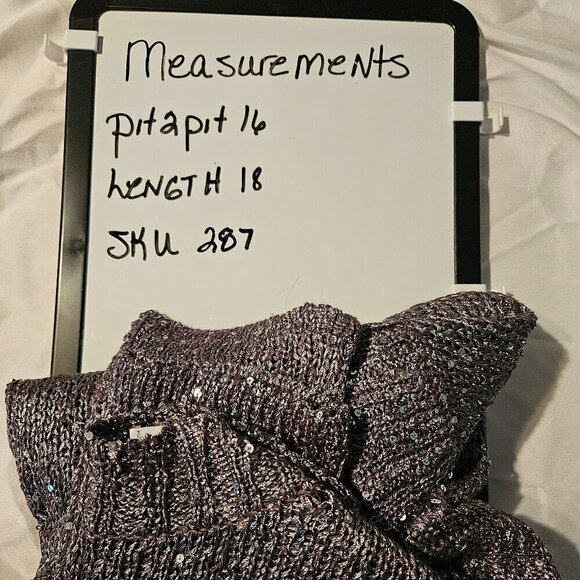 Measurements
pit2pit 16
LENGTH 18
SKU 287